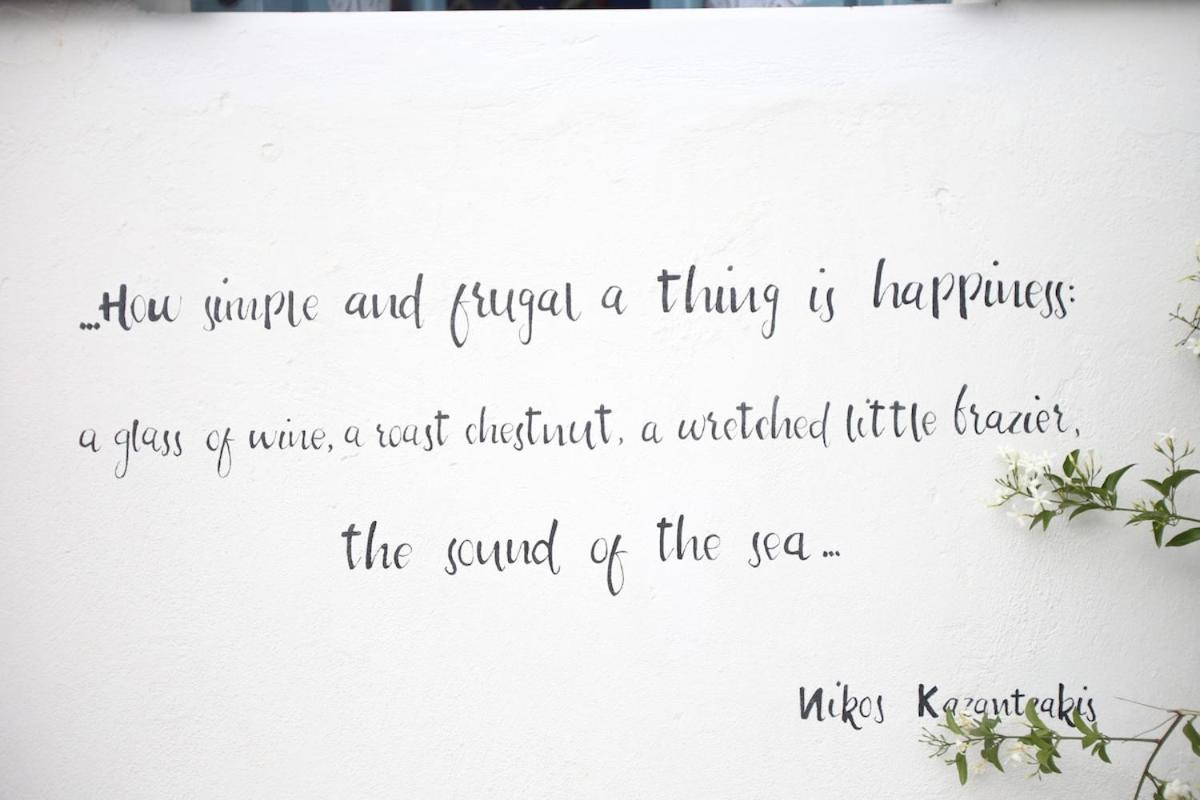 ...How simple and frugal a thing is happiness:
a glass of wine, a roast chestnut, a wretched little brazier,
the sound of the sea...
Nikos Kazantzakis